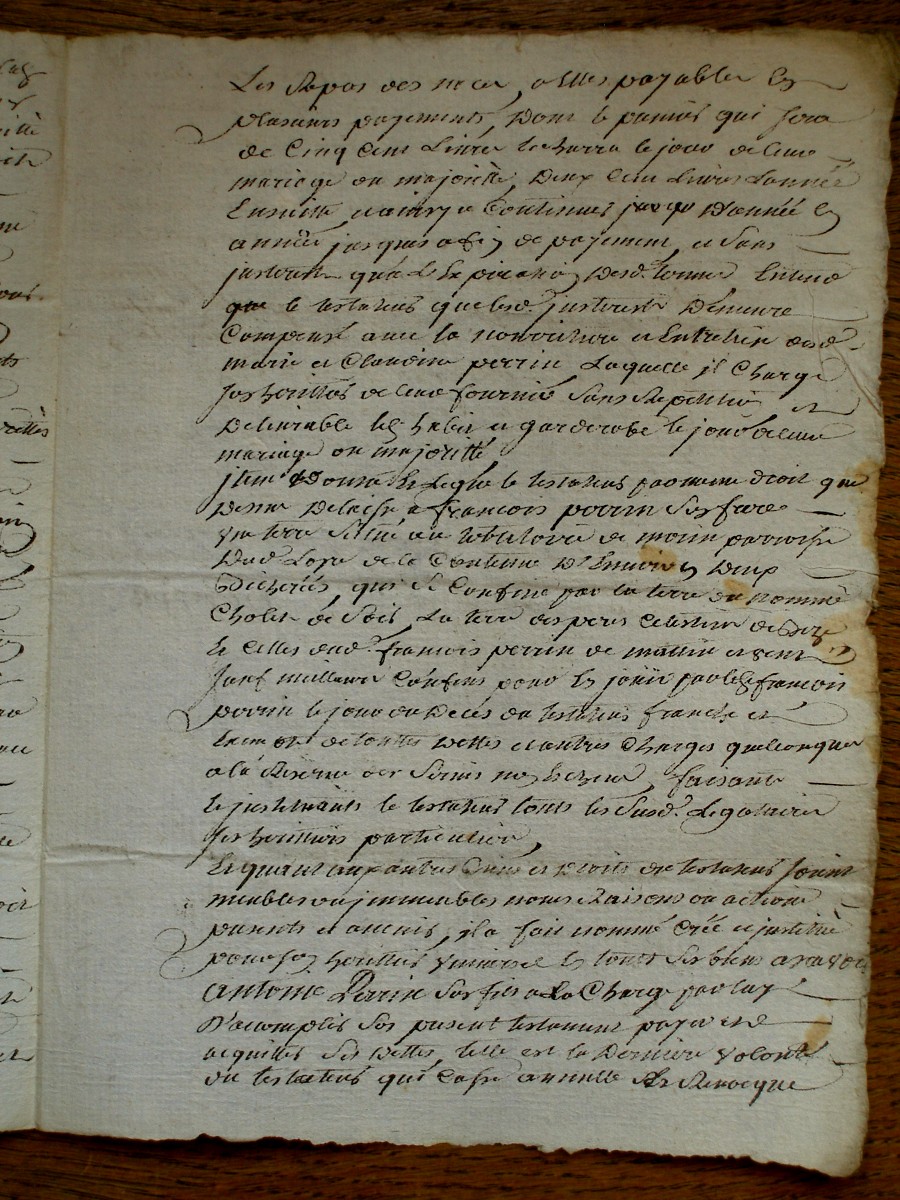 Les Repas des noces, a Elles payables En
plusieurs payements, Dont le premier qui sera
de Cinq Cent Livres le jour de leur
mariage ou majorité, Deux Cent Livres L'année
Ensuitte, et ainsy a Continuer jusqu D'année En
année jusques a fin de payement, et sans
jnterest qu'a L'Expiration Desd. termes Entend
que le testateur que led. jnterest Demeure
Compensé avec la nourriture et Entretien desd.
marie et Claudine perrin Laquelle jl Charge
ses heritiers de leur fournir sans Repetition et
Delivrable les habits et garderobe le jour de leur
mariage ou majorité
jtem Donne Et Legue le testateur par meme droit que
Dessus Delaisse a françois perrin son frere
Une terre scitué au territoire de morin parroisse
Dud. Loyre de la Contenue D'Environ Deux
Bicherées, qui se Confine par la terre du nommé
Cholet de Soir, La terre des peres Celestins de bize
Et Celles dud. françois perrin de mattin et vent
sauf meilleurs Confins pour En jouir par led. françois
perrin le jour du Deces du testateur franche et
Exempte de touttes Dettes et autres Charges quelconques
a la Reserve des Servis n'en Echeus, faisant
Et jnstituants le testateur touts les Susd. Legataires
ses heritiers particuliers,
Et quant aux autres Biens et Droits du testateur soient
meubles ou jmmeubles noms Raisons ou actions
presents et avenirs, jl a fait nommé Créé et jnstitué
pour son heritier universel En touts ses biens a savoir
Antoine Perrin son fils a La Charge par luy
D'acomplir son present testament payer et
acquitter ses dettes, telle est la Derniere volonté
du testateur qui Casse annulle Et Revocque